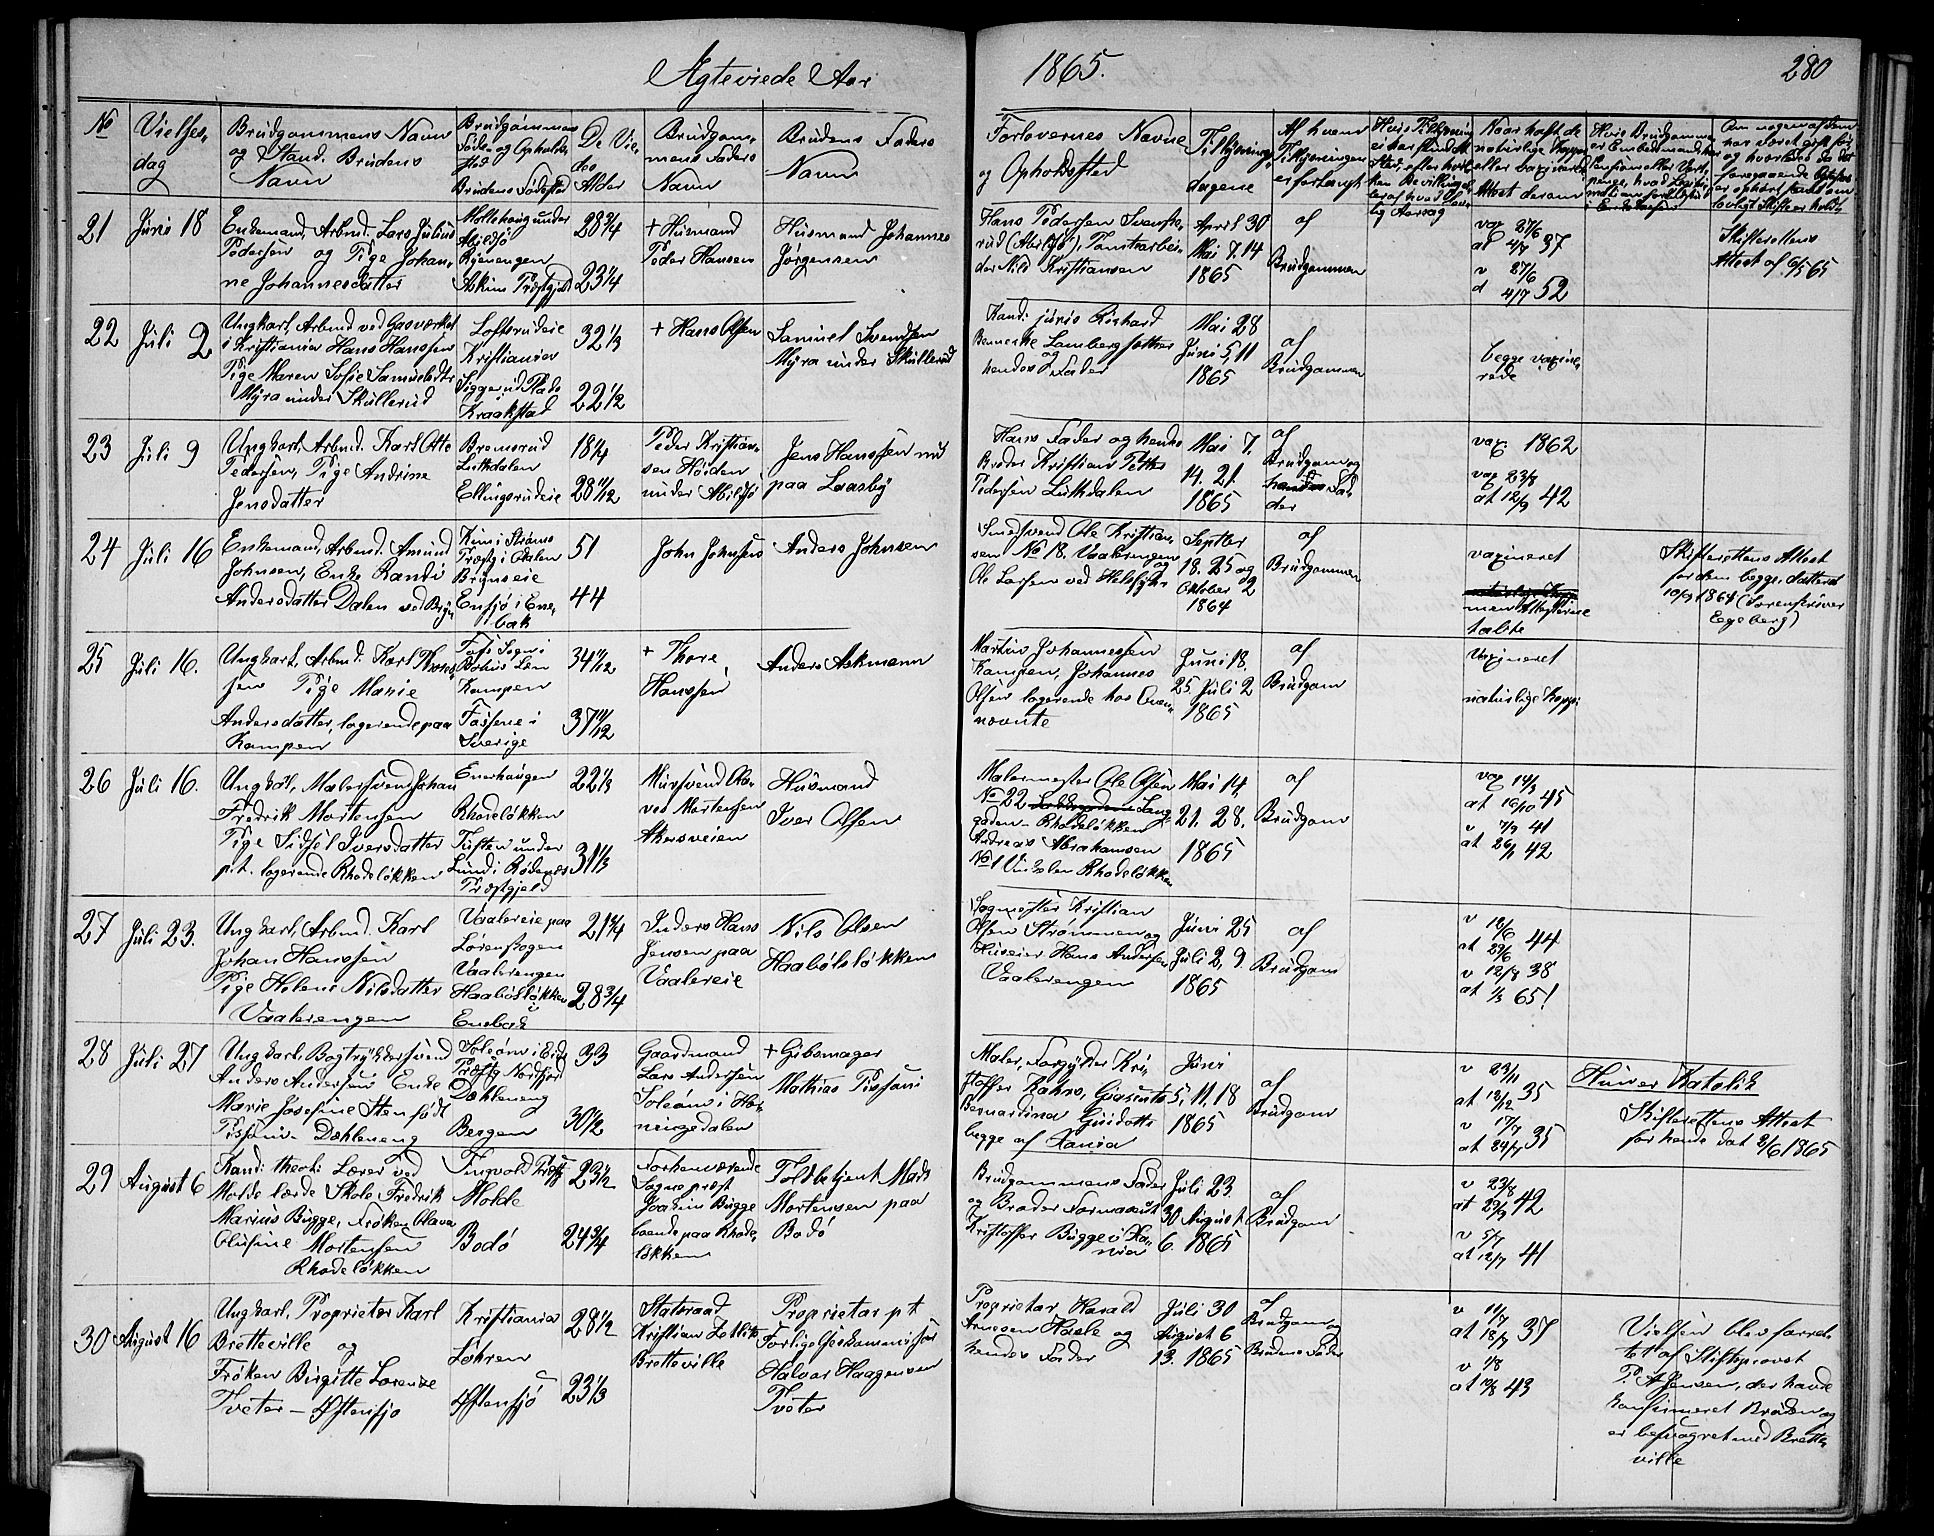 Ægteviede Aar 1865. 280
№
Vielses,
dag
Brudgommens Navn
og Stand. Brudens
Navn
Brudgommens
Føde- og Opholds,
sted
Brudens Fødested
De Vie,
des
Alder
Brudgom,
mens Faders
Navn
Brudens Faders
Navn
Forlovernes Navne
og Opholdssted
Tillysnings,
dagene
Af hvem
Tillysningen
er forlangt
21 Juni 18
Enkemand, Arbmd. Lars Julius
Pedersen og Pige Johan,
ne Johannesdatter
Møllehaug under
Abildsø
Ryenengen
Askim Præstgjeld
28 3/4
23 1/4
+ Husmand
Peder Hansen
Husmand Johannes
Jørgensen
Hans Pedersen Svenske,
rud (Abildsø), Tomtearbei,
der Nils Kristiansen
April 30
Mai 7. 14
1865
af
Brudgommen
vax 27/6
at 4/7 37
v 27/6
a 4/7 52
Skifterettens
Attest af 6/5 65
22 Juli 2
Ungkarl, Arbmd ved Gasværket
i Kristiania Hans Hanssen
Pige Maren Sofie Samuelsdtr
Myra under Skullerud
Loftsrudeie
Kristiania
Siggerud Plads
Kraakstad
32 1/3
22 1/2
+ Hans Olsen
Samuel Svendsen
Myra under Skullerud
Kand: juris Richard
Benneche Lamberg sætter
og
hendes Fader
Mai 28
Juni 5, 11
1865
af
Brudgommen
begge vaxine,
rede
23 Juli 9
Ungkarl, Arbmd. Karl Otto
Pedersen, Pige Andrine
Jensdatter
Bremsrud
Lutkdalen
Ellingsrudeie
18 1/4
28 11/12
Peder Kristian,
sen Høiden
under Abildsø
Jens Hanssen
paa Laasby
Hans Fader og hendes
Broder Kristian Petter
Pedersen Lutkdalen
Mai 7.
14. 21.
1865
af
Brudgom og
Fa,
der
vax. 1862
vax 23/8
at 12/9 42
24 Juli 16
Enkemand, Arbmd. Amund
Johnsen, Enke Randi
Andersdatter Dalen ved Bryn
Kim i Strøms
Præstg. i Odalen
Brynseie
Ensjø i Ene,
bak
51
44
John Johnsens
Anders Johnsen
Smedsvend Ole Kristian,
sen № 18. Vaalerengen
og
Ole Larsen ved Helsfyr
Septbr
18. 25 og
Oktober 2
1864
af
Brudgommen
vaxineret
men Attesterne
tabte
Skifterettens Attest
for dem begge, datteret
10/9 1864 (Sorenskriver
Egeberg)
25 Juli 16.
Ungkarl, Arbmd. Karl Thores,
sen Pige Marie
Andersdatter, logerende paa
Kampen
Foss Sogn i
Bohus Len
Kampen
Fossene i
Sverige
34 11/12
37 11/12
+ Thore
Hanssen
Anders Askmann
Martin Johannessen
Kampen, Johannes
Olsen logerende hos
Juni 18.
25. Juli 2
1865
af
Brudgom
Vaxineret
naturlige Kopper
26 Juli 16.
Ungkarl, Malersvend Johan
Fredrik Mortensen
Pige Sidsel Iversdatter
p.t. logerende Rhodeløkken
Enerhaugen
Rhodeløkken
Tuften under
Lund i Rødenæs
Præstgjeld
22 1/3
31 1/3
Mursvend Ole
Mortensen
Akersveien
Husmand
Iver Olsen
Malermester Ole Olsen
№ 22 Lang,
gaden - Rhodeløkken
Andreas Abrahamsen
№ 1 Rhodeløkken
Mai 14.
21. 28.
1865
af
Brudgom
vax 14/9
at 16/10 45
v 7/9 41
at 26/1 42
27 Juli 23.
Ungkarl, Arbmd. Karl
Johan Hanssen
Pige Helene Nilsdatter
Vaalerengen
Vaalereie paa
Lørenskogen
Vaalerengen
Haabølsløkken
i
Enebak
21 3/4
28 3/4
Inders Hans
Jensen paa
Vaalereie
Nils Olsen
Haabølsløkken
Sagmester Kristian
Olsen Strømmen og
Huseier Hans Andersen
Vaalerengen
Juni 25
Juli 2, 9.
1865
af
Brudgom
v 16/6
at 23/6 44
v 12/8 38
at 1/3 65!
28 Juli 27
Ungkarl, Bogtrykkersvend
Anders Andersen Enke
Marie Josefine Stensfødt
Pissani - Dæhleneng
Soleim i Eids
Præstg Nordfjord
Dæhleneng
Bergen
33
30 1/2
Gaardmand
Lars Andersen
Soleim i Hor,
ningdalen
+ Gibsmager
Mathias Pissani
Maler, Forgylder Kri,
stoffer Rahrs, Giasinto
Bernardino Guidotti
begge af Xania
Juni
5, 11, 18
1865
af
Brudgom
v 23/11
at 12/12 35
v 17/7
at 24/7 35
Hun er Katolik
Skifterettens Attest
for hende dat 2/6 1865
29 August 6
Kand: theol: Lærer ved
Molde lærde Skole Fredrik
Marius Bugge, Frøken Olava
Olufine Mortensen
Rhodeløkken
Tingvold Præstg
Molde
Bodø
23 1/2
24 3/4
Forhenværende
Sogneprest
Joakim Bugge
boende paa Rhode,
løkken
Toldbetjent Mads
Mortensen paa
Bodø
Brudgommens Fader
og Broder Formand
Kristoffer Bugge i Xa,
nia
Juli 23.
30 August
6. 1865
af
Brudgom
v 23/8
at 29/9 42
v 5/7
at 12/7 41
30 August 16
Ungkarl, Proprietær Karl
Bretteville og
Frøken Birgitte Lorenze
Tveter - Østensjø
Kristiania
Løhren
Østensjø
28 1/2
23 1/3
Statsraad
Kristian Zetlitz
Bretteville
Proprietær p.t.
Forligelseskommissær
Halvor Haagensen
Tveter
Proprietær Harald
Arnesen Hasle og
hendes Fader
Juli 30
August 6
13. 1865
af
Brudgom og
Brudens Fader
v 11/7
at 18/7 37
v 1/8
at 10/8 43
Vielsen blev forret,
tet af Stiftsprovst
P. A. Jensen, der havde
konfirmeret Bruden og
er besvogret med Brette,
ville